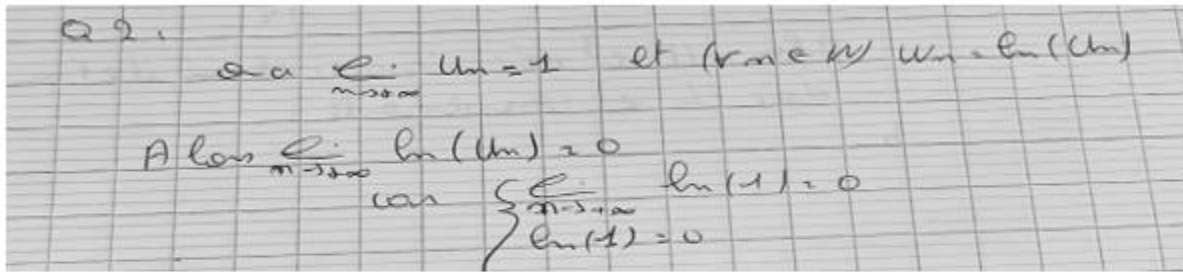 Q 2.
On a lim Un = 1 et (∀n∈ℕ) Wn = ln(Un)
n→+∞
Alors lim ln(Un) = 0
n→+∞
car { lim ln(1) = 0
n→+∞
ln(1) = 0